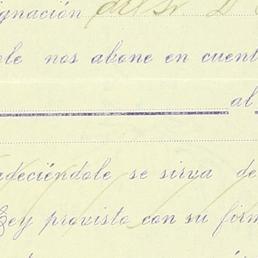 ignación del Sr D
ble nos abone en cuent
al
adeciéndole se sirva de
Ley provisto con su firm